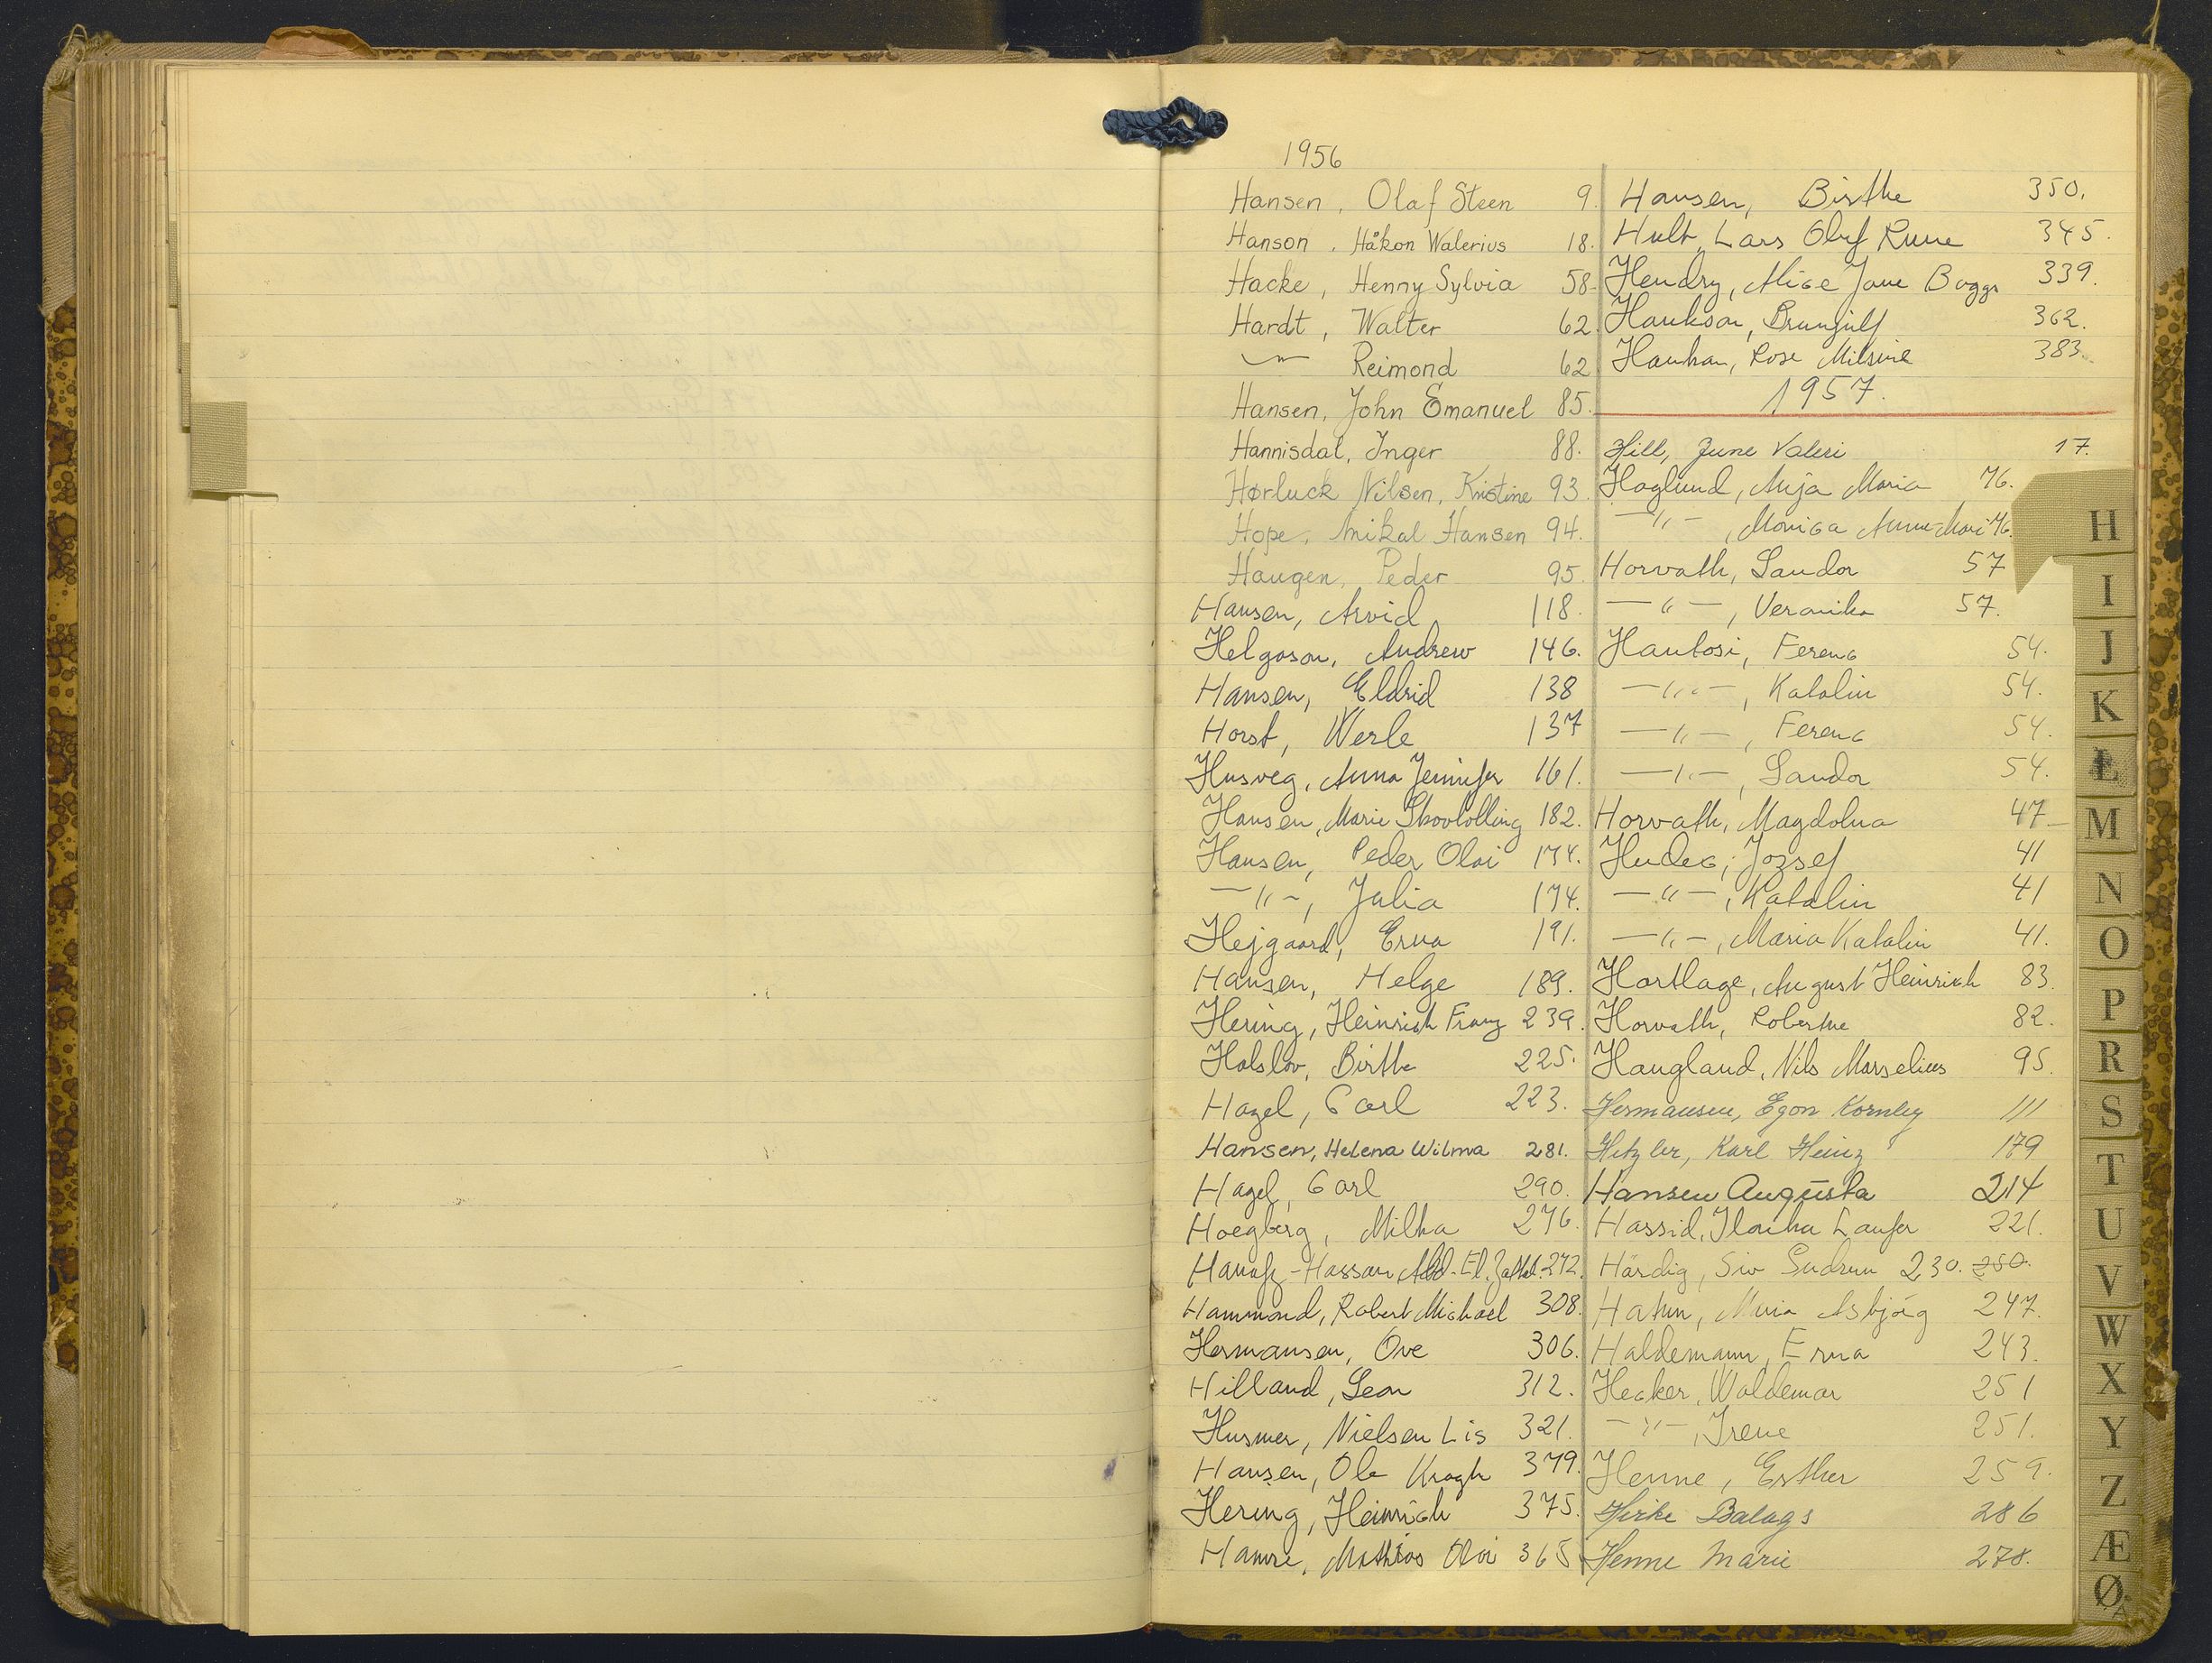 1956
Hansen, Olaf Steen 9.
Hanson, Håkon Walerius 18.
Hacke, Henny Sylvia 58.
Hardt, Walter 62.
—"— Reimond 62
Hansen, John Emanuel 85.
Hannisdal, Inger 88.
Hørluck Nilsen, Kristine 93.
Hope, Mikal Hansen 94.
Haugen, Peder 95.
Hansen, Arvid 118.
Helgason, Andrew 146.
Hansen, Eldrid 138
Horst, Werle 137
Husveg, Anna Jennifer 161.
Hansen, Marie 182.
Hansen, Peder Olai 174.
—"—, Julia 174.
Hejgaard, Erna 191.
Hansen, Helge 189.
Hering, Heinrich Franz 239.
Holslov, Birthe 225.
Hazel, Carl 223.
Hansen, Helena Wilma 281.
Hazel, Carl 290.
Hoegberg, Milka 276.
Hanafy-Hassan, Abd-El 272.
Hammond, Robert Michael 308.
Hermansen, Ove 306.
Hilland, Leon 312.
Husmer, Nielsen Lis 321.
Hansen, Ole Kragh 379.
Hering, Heinrich 375.
Hamre, Mathias Olai 365
Hansen, Birthe 350.
Hult, Lars Oluf Rune 345.
Hendry, Alice Jane Boggs 339.
Haukson, Brunjulf 362.
Rose 383.
1957.
Hill, June Valeri 17.
Haglund, Anja Maria 76.
—"—, Monica Anne Mari 76.
Horvath, Sandor 57
—"—, Veronika 57.
Hautosi, Ferenc 54.
—"—, Katalin 54.
—"—, Ferenc 54.
—"—, Sandor 54.
Horvath, Magdolna 47
Hudec, Jozsef 41
—"—, Katalin 41
—"—, Maria Katalin 41.
Hortlage, August Heinrich 83.
Horvath, Robertne 82.
Haugland, Nils Marselius 95.
Hermansen, Egon Kornleg 111
Hetzler, Karl Heinz 179
Hansen Augusta 214
Hassid, Laufer 221.
Härdig, Siv Gudrun 230. 250.
Hatun, Maria Asbjørg 247.
Haldemann, Erna 243.
Hecker, Waldemar 251
—"—, Irene 251.
Henne, Esther 259.
Hirke Balazs 286
Henne Marie 278.
H
I
J
K
L
M
N
O
P
R
S
T
U
V
W
X
Y
Z
Æ
Ø
Å